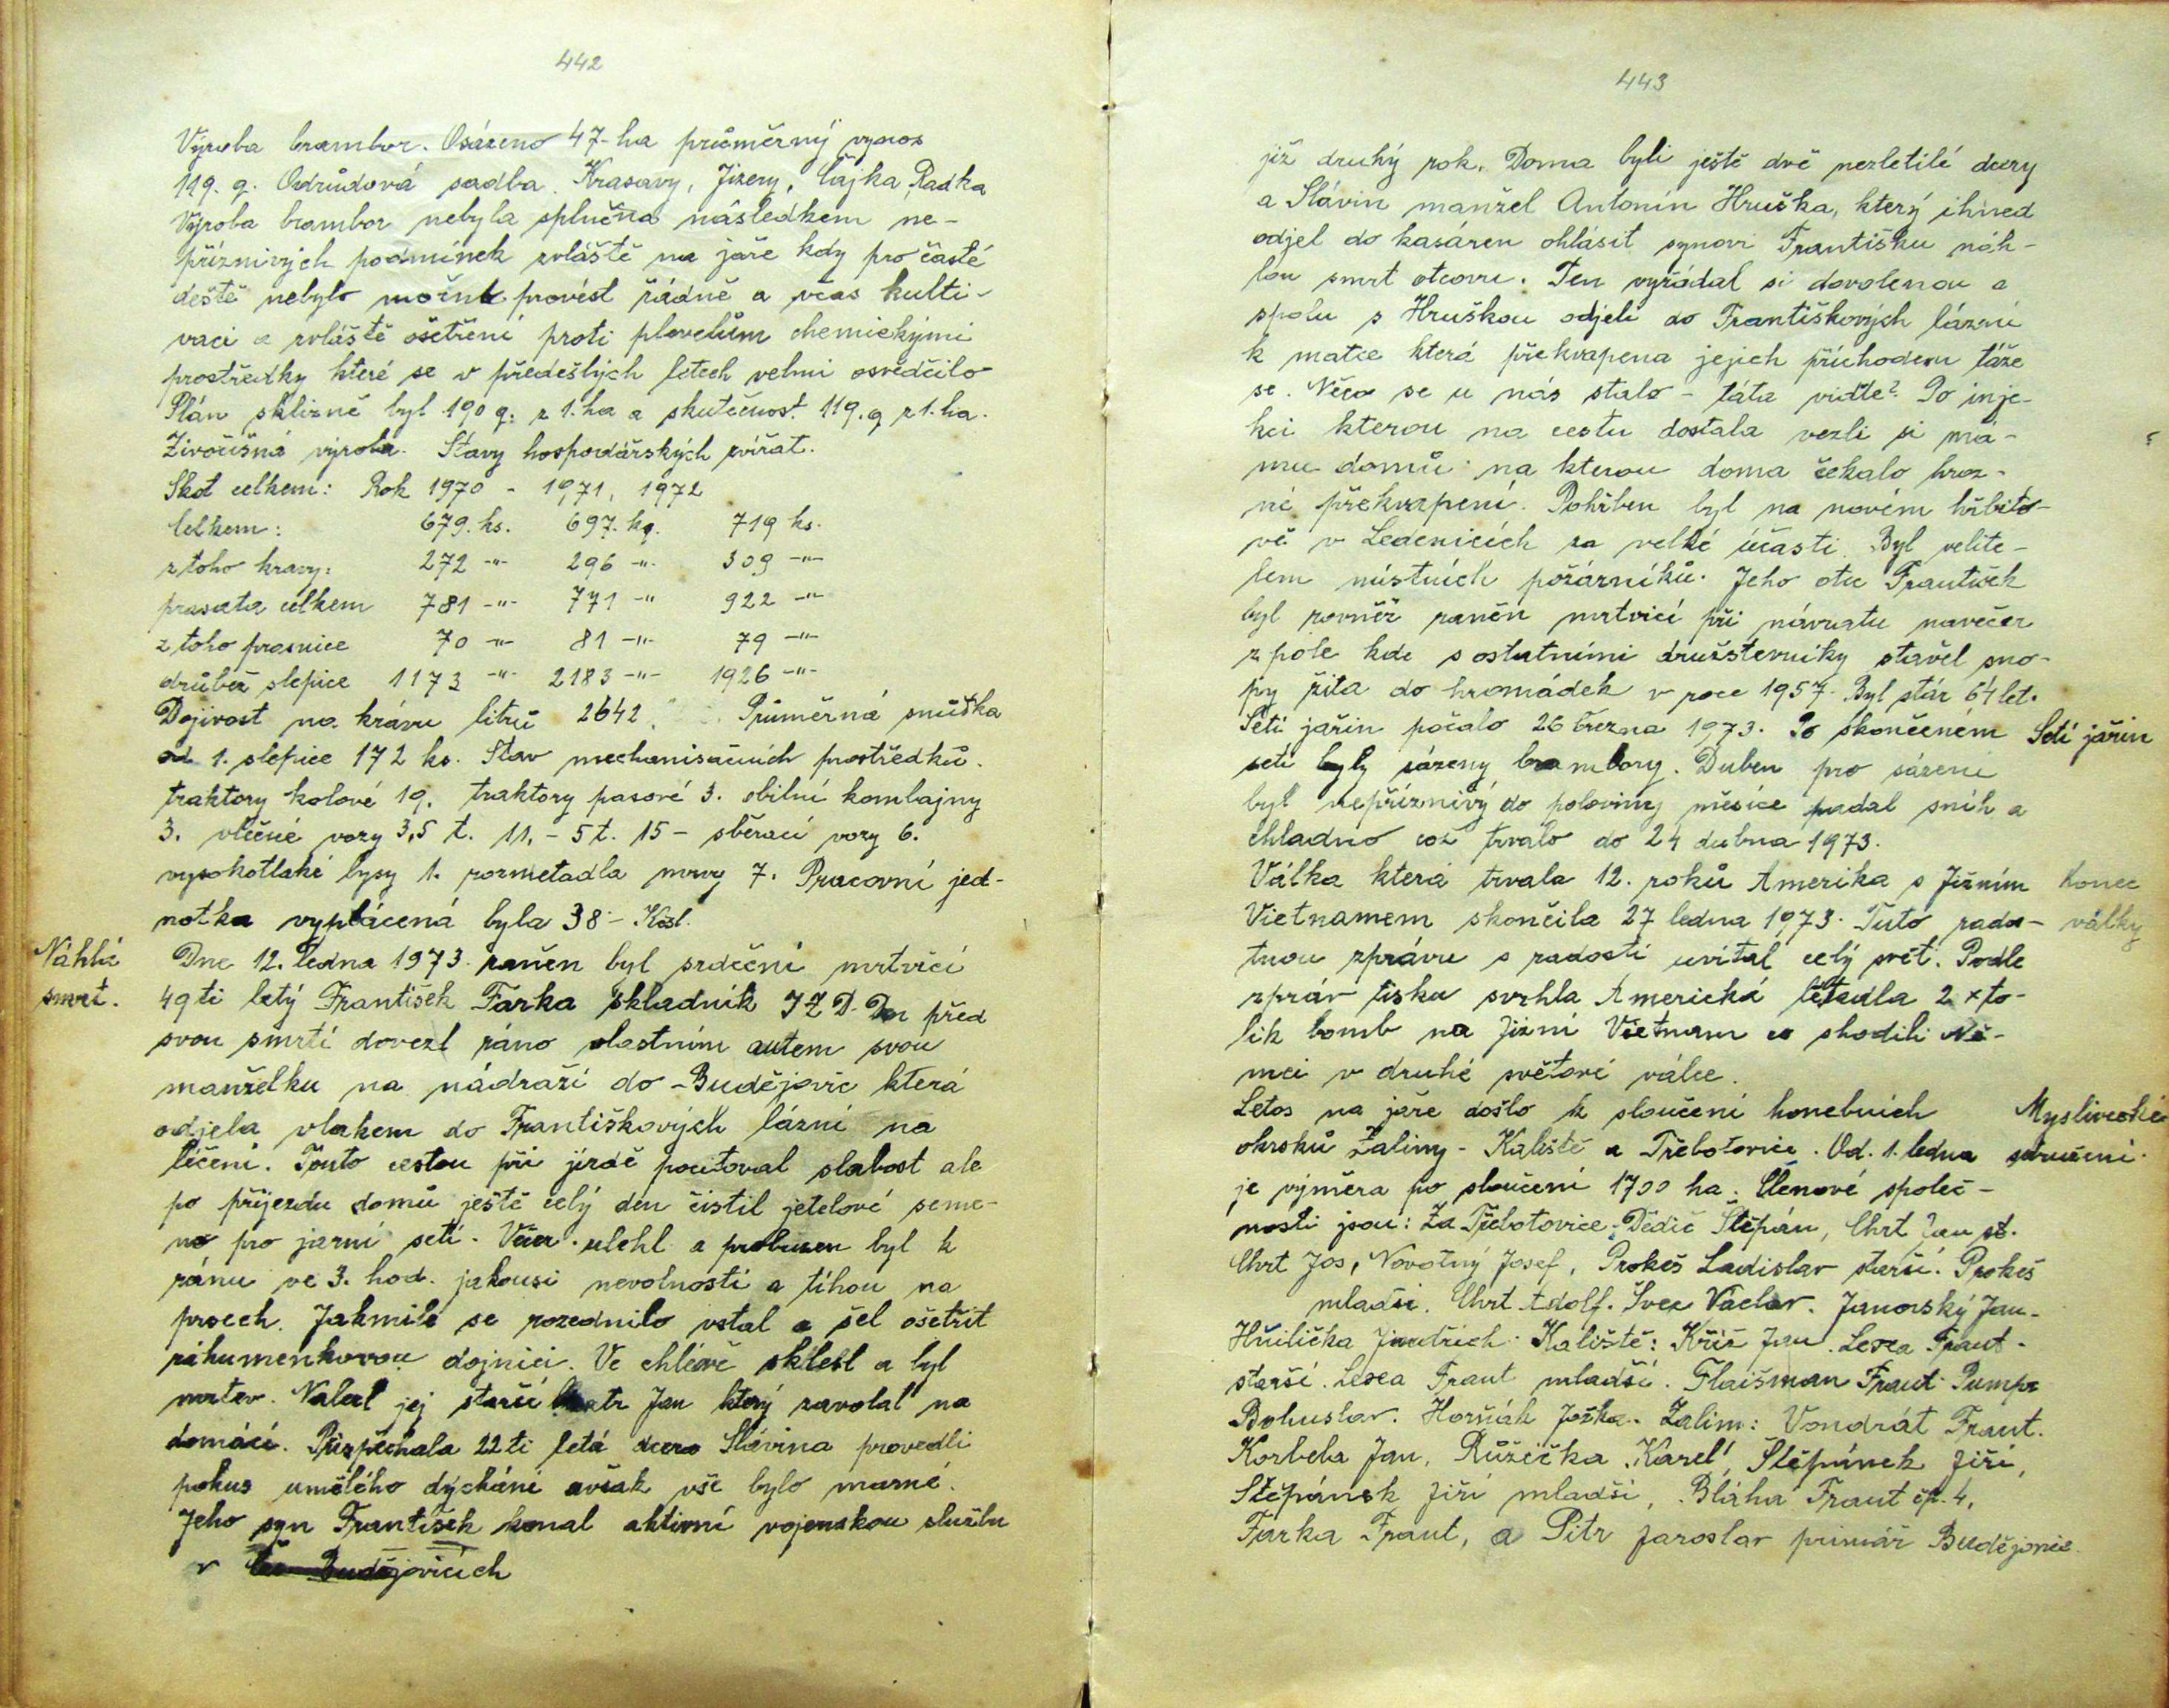 442
Výroba brambor. Osázeno 47-ha průměrný vynos
119. q. Odrůdová sadba. Krasavy, Jizery, Čajka, Radka
Výroba brambor nebyla splněna následkem ne-
příznivých podmínek zvláště na jaře kdy pro časté
deště nebylo možné provést řádně a včas kulti-
vaci a zvláště ošetření proti plevelům chemickými
prostředky které se v předešlých letech velmi osvědčilo
Plán sklizně byl 190 q. z 1. ha a skutečnost 119. q z 1. ha.
Živočišná výroba. Stavy hospodářských zvířat.
Skot celkem: Rok 1970 - 1971, 1972
Celkem: 679. ks. 697. ks. 719 ks.
z toho kravy: 272 -"- 296 -"- 309 -"-
prasata celkem 781 -"- 771 -"- 922 -"-
z toho prasnice 70 -"- 81 -"- 79 -"-
drůbež slepice 1173 -"- 2183 -"- 1926 -"-
Dojivost na krávu litrů 2642. Průměrná snůška
od 1. slepice 172 ks. Stav mechanisačních prostředků.
traktory kolové 19. traktory pasové 3. obilní kombajny
3. vlečné vozy 3,5 t. 11, - 5 t. 15 - sběrací vozy 6.
vysokotlaké lysy 1. rozmetadla mrvy 7. Pracovní jed-
notka vyplácená byla 38 - Kčsl.
Náhlé smrt.
Dne 12. ledna 1973 raněn byl srdeční mrtvicí
49 ti letý František Farka skladník JZD. Den před
svou smrtí dovezl ráno vlastním autem svou
manželku na nádraží do - Budějovic která
odjela vlakem do Františkových lázní na
léčení. Touto cestou při jízdě pociťoval slabost ale
po příjezdu domů ještě celý den čistil jetelové seme-
no pro jarní setí. Večer ulehl a probuzen byl k
ránu ve 3. hod. jakousi nevolností a tíhou na
prsech. Jakmile se rozednilo vstal a šel ošetřit
záhumenkovou dojnici. Ve chlévě sklesl a byl
mrtev. Nalezl jej starší bratr Jan který zavolal na
domácí. Přispěchala 22 ti letá dcera Slávina provedli
pokus umělého dýchání avšak vše bylo marné.
Jeho syn František konal aktivní vojenskou službu
v Čes Budějovicích
443
již druhý rok. Doma byli ještě dvě nezletilé dcery
a Slávin manžel Antonín Hruška, který ihned
odjel do kasáren ohlásit synovi Františku náh-
lou smrt otcovu. Ten vyžádal si dovolenou a
spolu s Hruškou odjeli do Františkových lázní
k matce která překvapena jejich příchodem táže
se. Něco se u nás stalo - táta viďte? Po inje-
kci kterou na cestu dostala vezli si má-
mu domů na kterou doma čekalo hroz-
né překvapení. Pohřben byl na novém hřbito-
vě v Ledenicích za velké účasti. Byl velite-
lem místních požárníků. Jeho otec František
byl rovněž raněn mrtvicí při návratu navečer
z pole kde s ostatními družstevníky stavěl sno-
py žita do hromádek v roce 1957. Byl stár 64 let.
Setí jařin počalo 26 března 1973. Po skončeném
Setí jařin
setí byly sázeny brambory. Duben pro sázení
byl nepříznivý do poloviny měsíce padal sníh a
chladno což trvalo do 24 dubna 1973.
Válka která trvala 12. roků Amerika s Jižním
Konec války
Vietnamem skončila 27 ledna 1973. Tuto rado-
tnou zprávu s radostí uvítal celý svět. Podle
zpráv tisku svrhla Americká letadla 2 x to-
lik bomb na Jižní Vietnam co shodili Ně-
mci v druhé světové válce.
Letos na jaře došlo k sloučení honebních
Myslivecké sdružení.
okrsků Zaliny - Kaliště a Třebotovice. Od. 1. ledna
je výměra po sloučení 1700 ha. Členové společ-
nosti jsou: Za Třebotovice: Dědič Štěpán, Chrt Jan st.
Chrt Jos, Novotný Josef, Prokeš Ladislav starší. Prokeš
mladší. Chrt Adolf. Švec Václav. Janovský Jan.
Hřilička Jindřich. Kaliště: Kříž Jan. Lesca Frant.
starší. Lesca Frant mladší. Flaišman Frant. Pumpr
Bohuslav. Horňák Joška. Zalin: Vondrát Frant.
Korbela Jan, Růžička Karel, Štěpánek Jiří,
Štěpánek Jiří mladší, Bláha Frant čp. 4,
Farka Frant, a Pitr Jaroslav primář Budějovic.